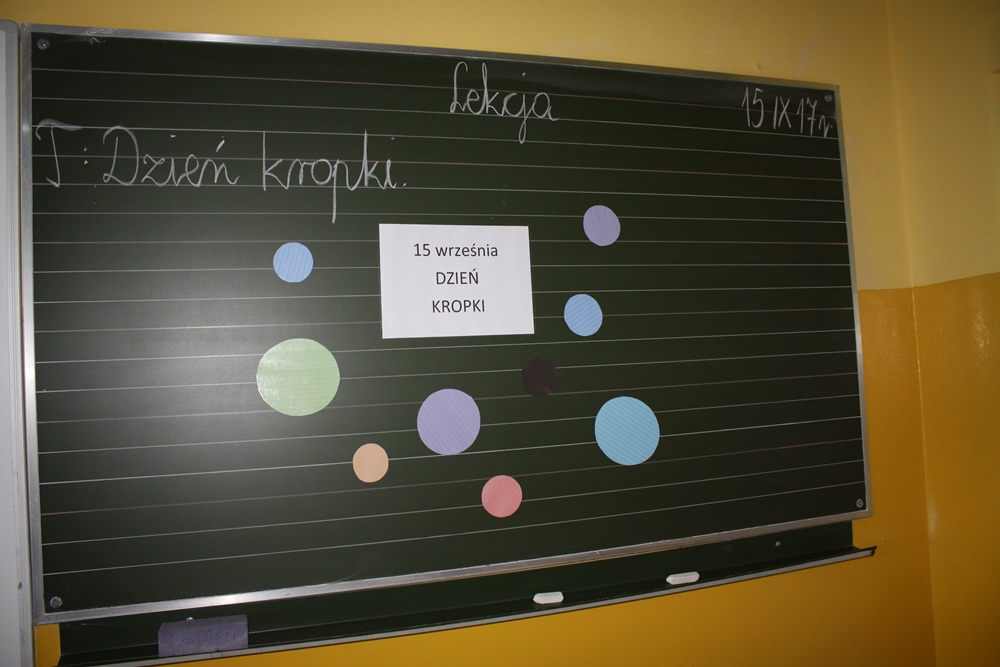 Lekcja
15 IX 17r.
T: Dzień kropki.
15 września
DZIEŃ
KROPKI